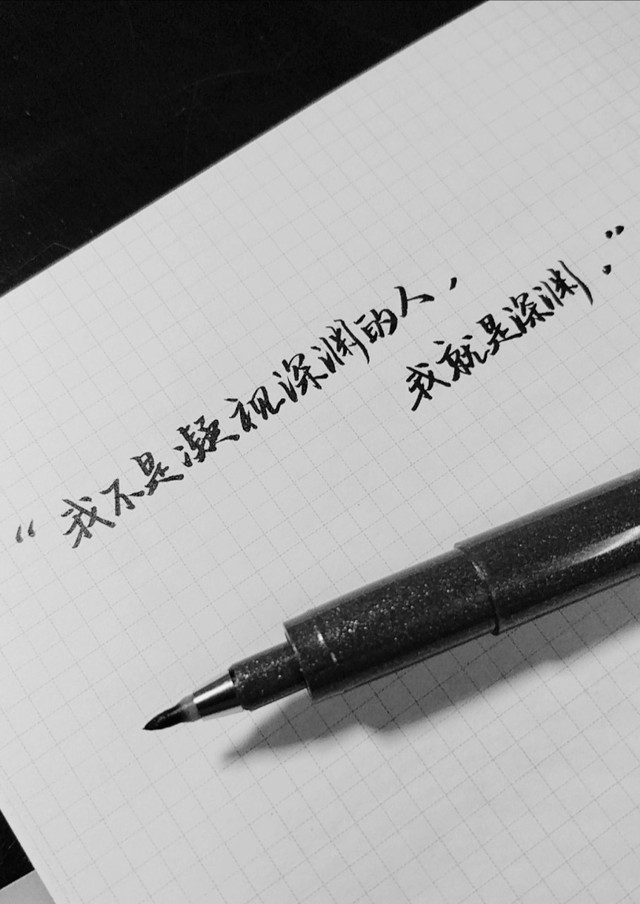 “我不是凝视深渊的人，
我就是深渊.”